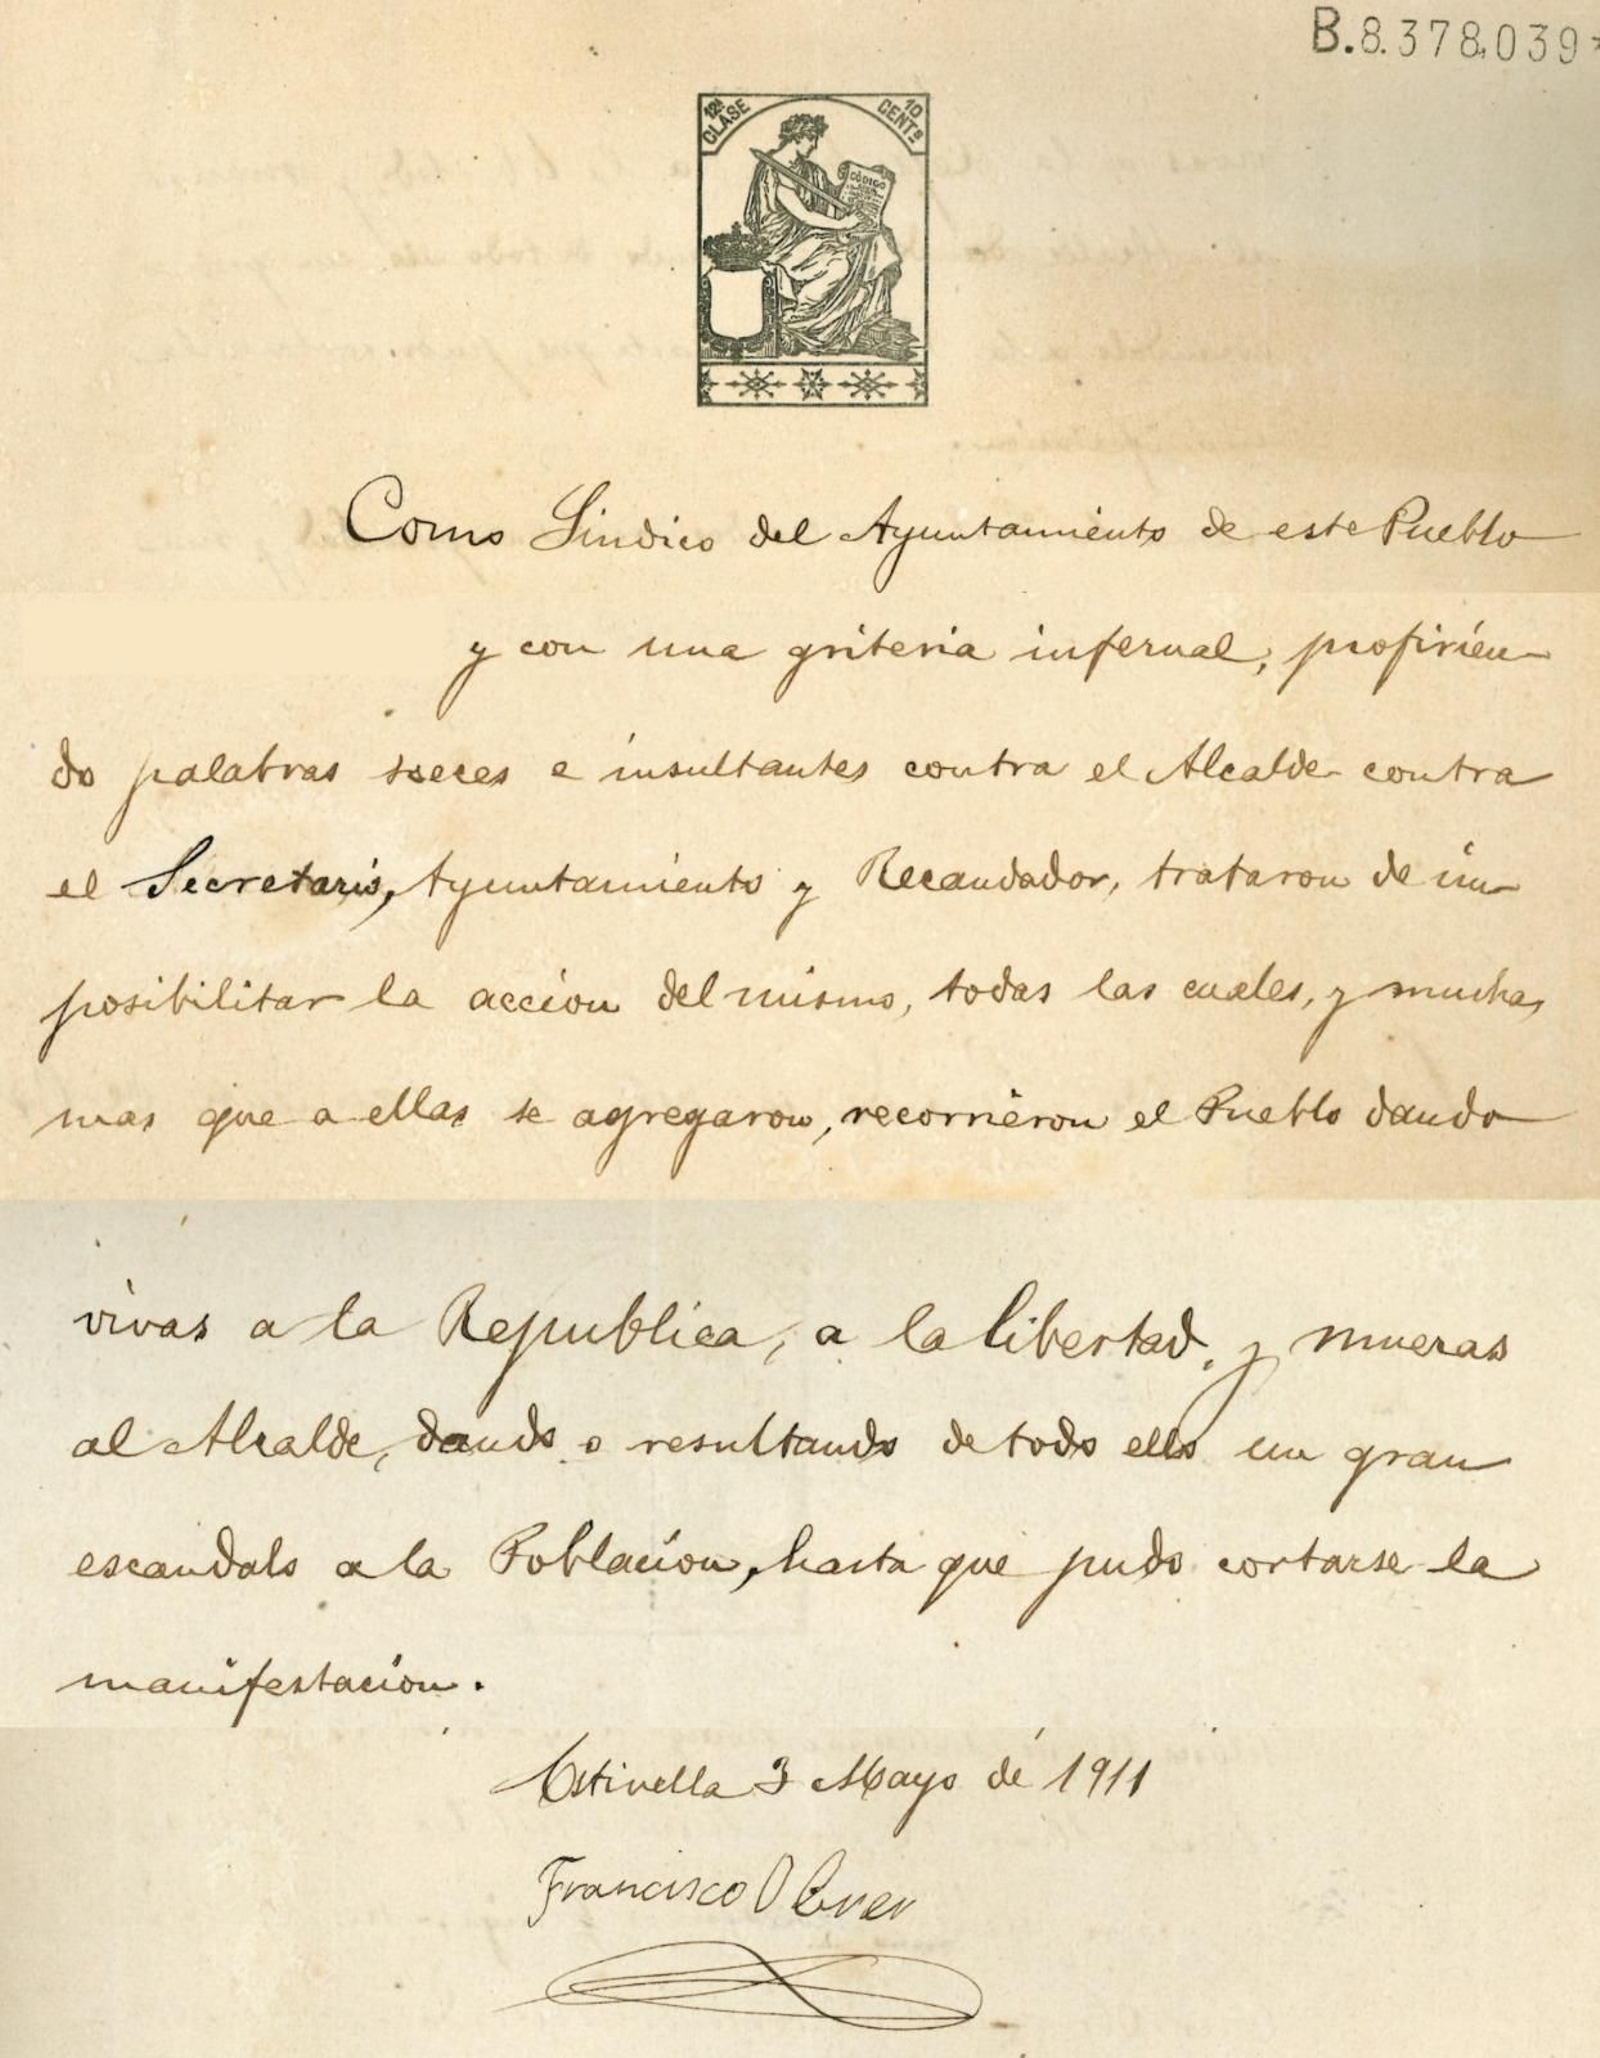 B.8.378.039*
12ª CLASE
10 CENTS
CÓDIGO
Como Sindico del Ayuntamiento de este Pueblo
y con una griteria infernal, profirien-
do palabras soeces e insultantes contra el Alcalde contra
el Secretario, Ayuntamiento y Recaudador, trataron de im-
posibilitar la acción del mismo, todas las cuales, y muchas
mas que a ellas se agregaron, recorrieron el Pueblo dando
vivas a la Republica, a la libertad, y mueras
al Alcalde, dando o resultando de todo ello un gran
escandalo a la Poblacion, hasta que pudo cortarse la
manifestacion.
Estivella 3 Mayo de 1911
Francisco